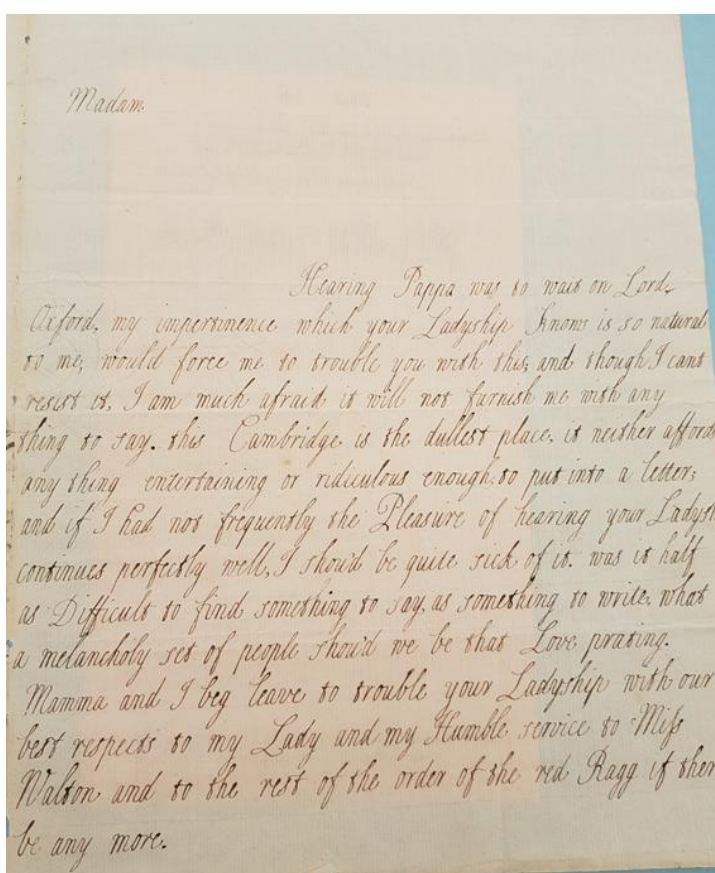 Madam.
Hearing Pappa was to wait on Lord
Oxford, my impertinence which your Ladyship Knows is so natural
to me, would force me to trouble you with this, and though I cant
resist it, I am much afraid it will not furnish me with any
thing to say. this Cambridge is the dullest place, it neither affords
any thing entertaining or ridiculous enough to put into a letter;
and if I had not frequently the Pleasure of hearing your Ladysh
continues perfectly well, I shou'd be quite sick of it. was it half
as Difficult to find something to say, as something to write, what
a melancholy set of people shou'd we be that Love prating.
Mamma and I beg leave to trouble your Ladyship with our
best respects to my Lady and my Humble service to Miss
Walton and to the rest of the order of the red Ragg if ther
be any more.